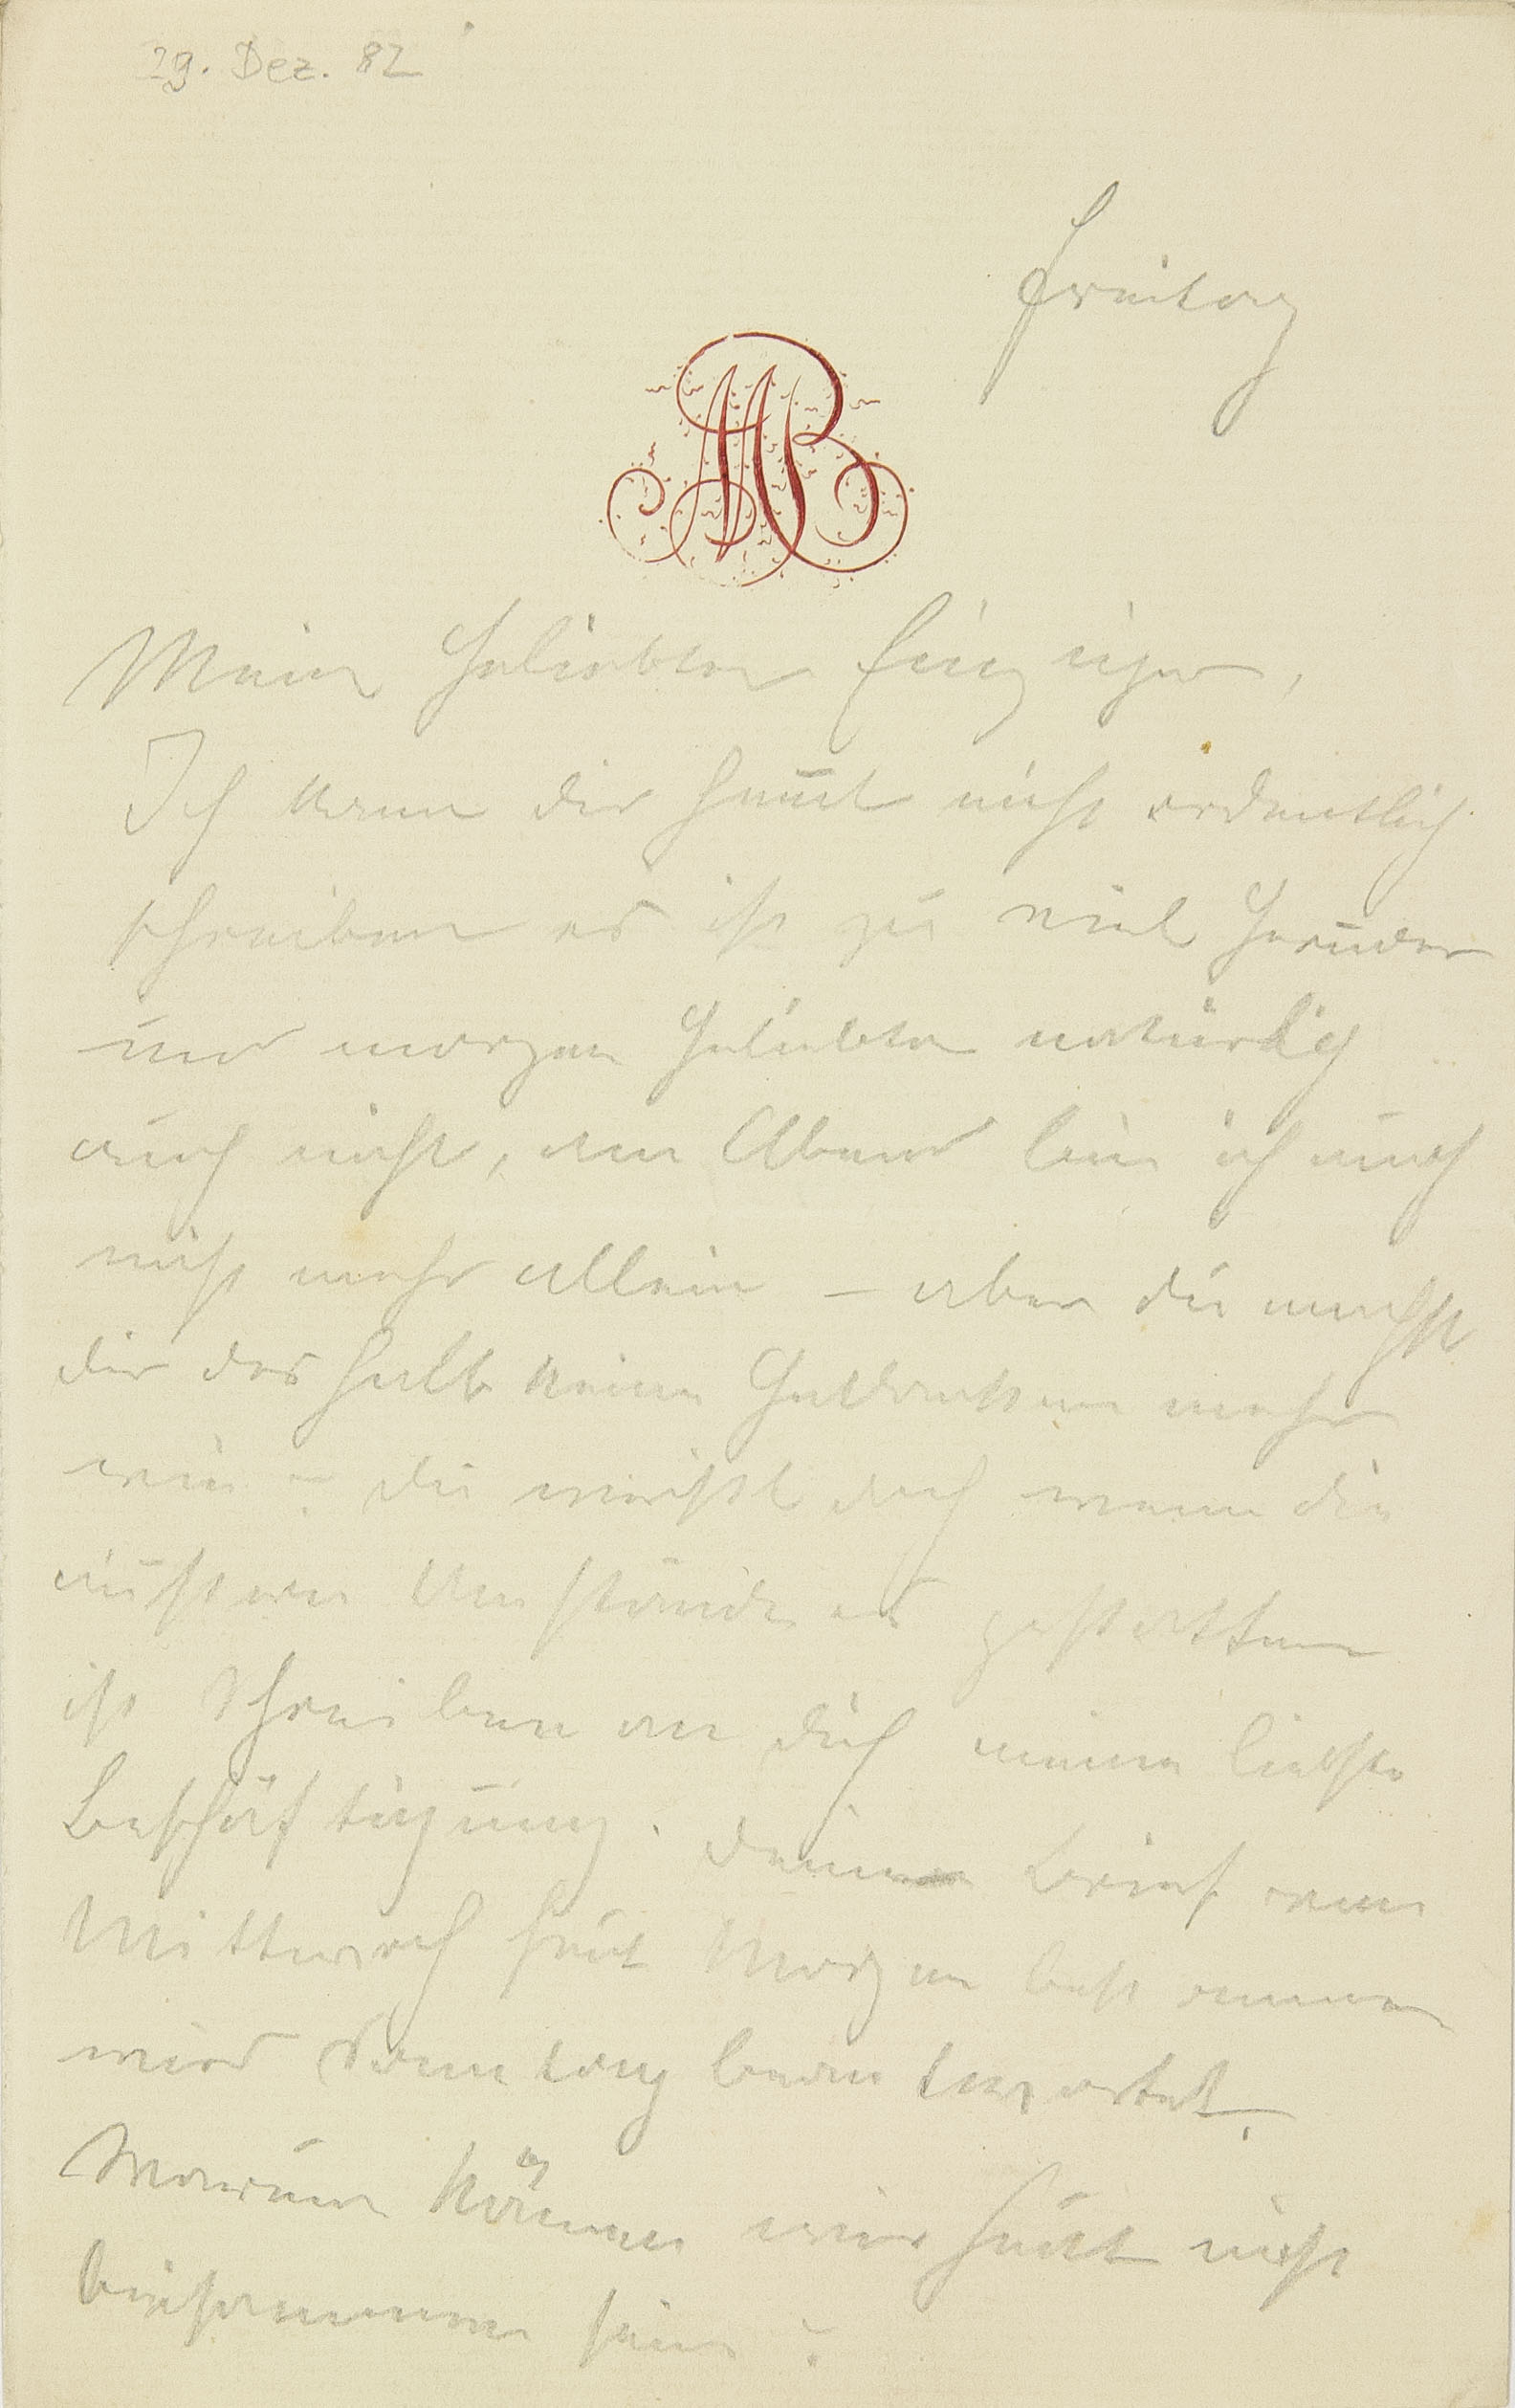 29. Dez. 82
Freitag
MB
Mein Geliebter Einziger,
Ich kann dir heut nicht ordentlich
schreiben es ist zu viel
und morgen Geliebter natürlich
auch nicht, am Abend bin ich auch
nicht mehr allein – aber du machst
dir deshalb keine Gedanken mehr
wie? du weißt doch wenn die
äußeren Umstände es gestatten
ist Schreiben an dich meine liebste
Beschäftigung. Dein Brief vom
Mittwoch heut Morgen bekommen
wird Sonntag beantwortet.
Warum können wir heut nicht
beisammen sein?